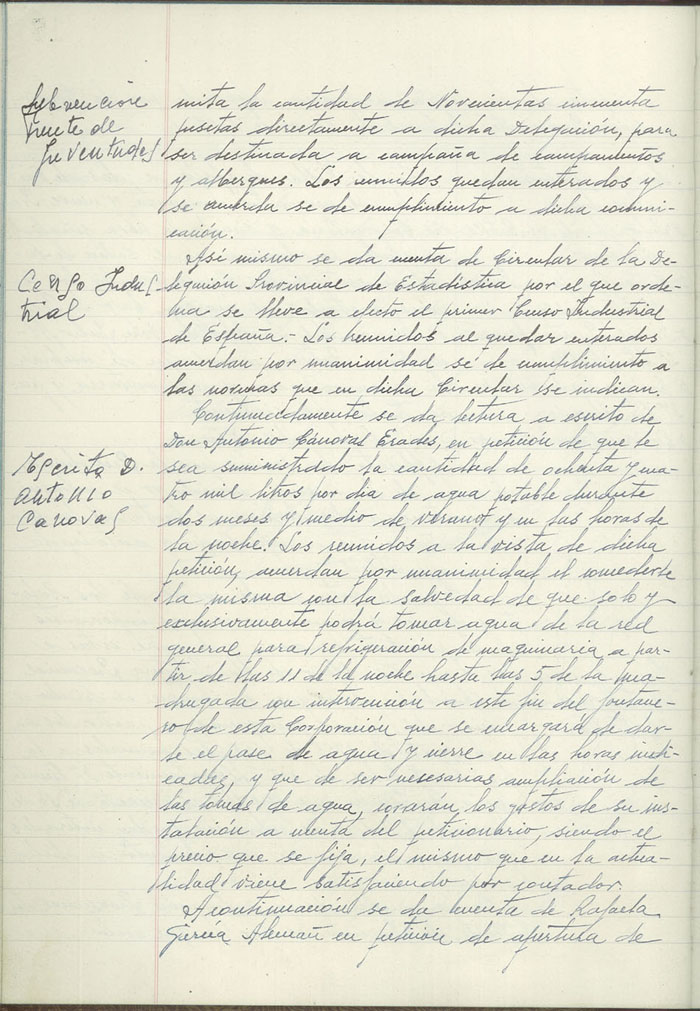 Subvencione
frente de
Juventudes
mita la cantidad de Novecientas cincuenta
pesetas directamente a dicha Delegación, para
ser destinada a campaña de campamentos
y Albergues. Los reunidos quedan enterados y
se acuerda se de cumplimiento a dicha comuni-
cación.
Censo Indus-
trial
Asi mismo se da cuenta de Circular de la De-
legación Provincial de Estadistica por el que orde-
na se lleve a efecto el primer Censo Industrial
de España.- Los reunidos al quedar enterados
acuerdan por unanimidad se dé cumplimiento a
las normas que en dicha Circular se indican.
Continuadamente se da lectura a escrito de
Don Antonio Cánovas Erades, en petición de que le
Escrito D.
Antonio
Canovas
sea suministrado la cantidad de ochenta y cua-
tro mil litros por dia de agua potable durante
dos meses y medio de verano y en las horas de
la noche. Los reunidos a la vista de dicha
petición, acuerdan por unanimidad el concederle
la misma con la salvedad de que solo y
exclusivamente podrá tomar agua de la red
general para refrigeración de maquinaria a par-
tir de las 11 de la noche hasta las 5 de la ma-
drugada con intervención a este fin del fontane-
ro de esta Corporación que se encargará de dar-
le el pase de agua y cierre en las horas indi-
cadas, y que de ser necesarias ampliación de
las tomas de agua, correrán los gastos de su ins-
talación a cuenta del peticionario, siendo el
precio que se fija, el mismo que en la actua-
lidad viene satisfaciendo por contador.
A continuación se da cuenta de Rafaela
Garcia Alemañ en petición de apertura de